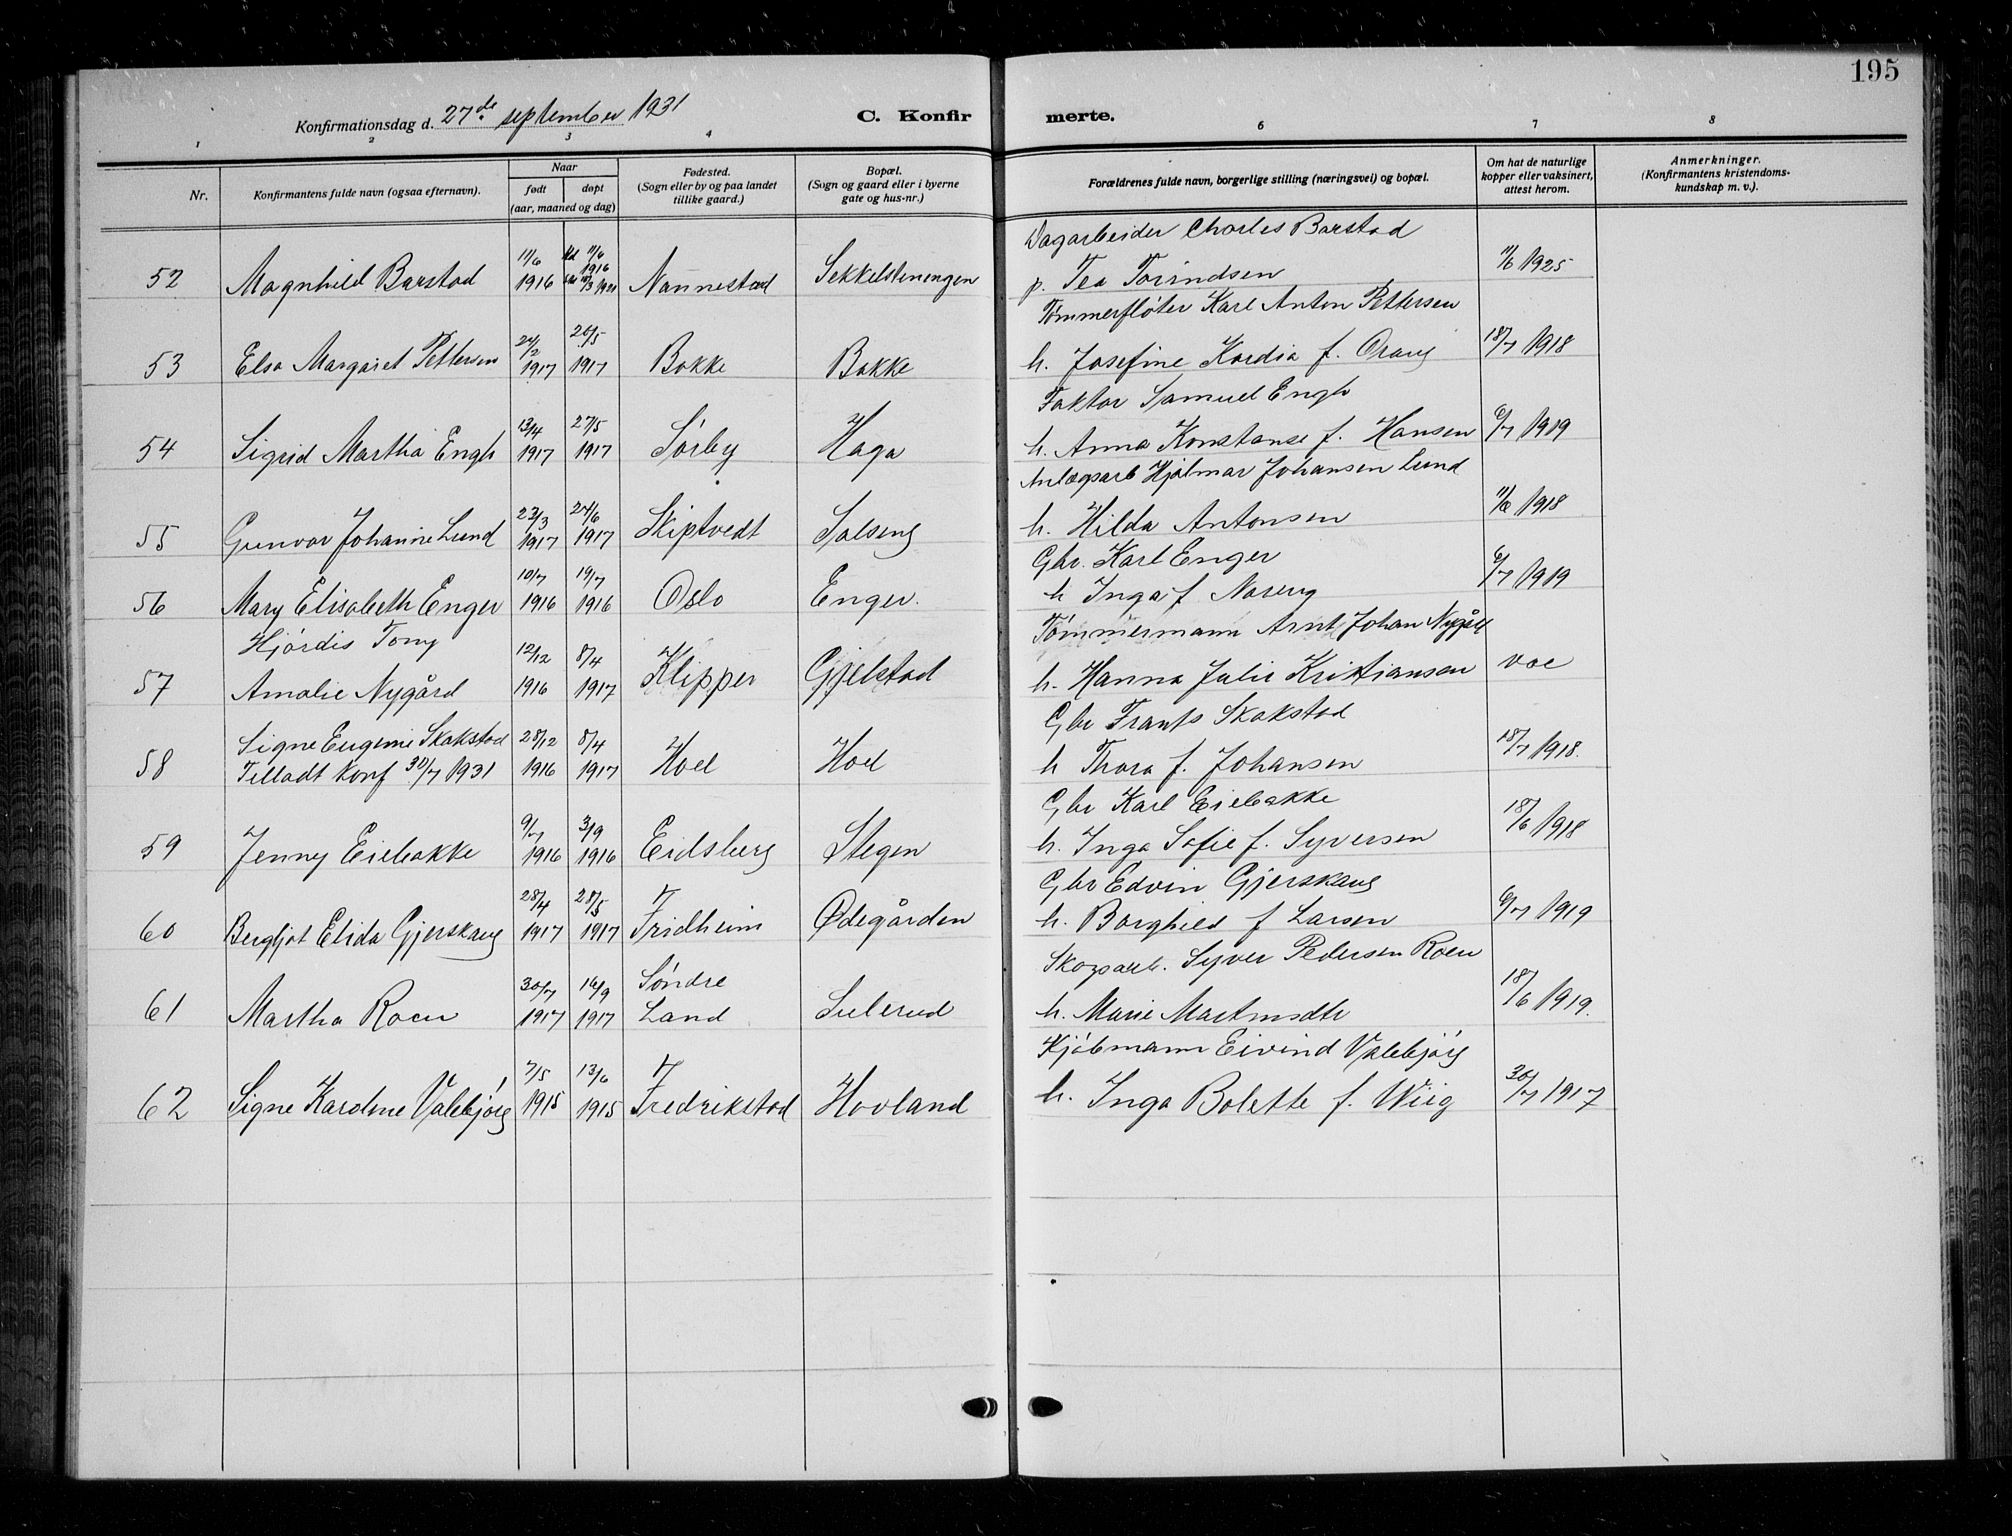 195
Konfirmationsdag d. 27de september 1931
C. Konfir merte.
1 2 3 4 6 7 8
Nr.
Konfirmantens fulde navn (ogsaa efternavn).
Naar
født døpt
(aar, maaned og dag)
Fødested.
(Sogn eller by og paa landet
tillike gaard.)
Bopæl.
(Sogn og gaard eller i byerne
gate og hus-nr.)
Forældrenes fulde navn, borgerlige stilling (næringsvei) og bopæl.
Om hat de naturlige
kopper eller vaksinert,
attest herom.
Anmerkninger.
(Konfirmantens kristendoms-
kundskap m. v.).
Dagarbeider Charles Barstad
52 Magnhild Barstad 11/6 1916 11/6 1916 Nannestad Sekkelstenengen p. Tea 11/6 1925
Tømmerfløter Karl Anton Pettersen
53 Elsa Margaret Pettersen 24/2 1917 26/5 1917 Bakke Bakke h. Josefine Kordia f. Oraug 18/7 1918
Faktor Samuel Engh
54 Sigrid Martha Engh 13/4 1917 27/5 1917 Sørby Haga h. Anna Konstanse f. Hansen 6/7 1919
Anlægsarb Hjalmar Johansen Lund
55 Gunvor Johanne Lund 23/3 1917 24/6 1917 Skiptvedt Solseng h. Hilda Antonsen 11/6 1918
Gbr. Karl Enger
56 Mary Elisabeth Enger 10/7 1916 19/7 1916 Oslo Enger. h Inga f Noreng 6/7 1919
Hjørdis Tony
Tømmermann Arnt Johan Nygård
57 Amalie Nygård 12/12 1916 8/4 1917 Klipper Gjelstad h. Hanna Julie Kristiansen vac
Gbr Frants Skakstad
58 Signe Eugenie Skakstad 28/12 1916 8/4 1917 Hoel Hoel h Thora f. Johansen 18/7 1918.
Tilladt konf 30/7 1931
Gbr Karl Eiebakke
59 Jenny Eiebakke 9/7 1916 3/9 1916 Eidsberg Stegen h. Inga Sofie f. Syversen 18/6 1918
Gbr Edvin Gjerskaug
60 Bergljot Elida Gjerskaug 28/4 1917 28/5 1917 Fridheim Ødegården h. Borghild f Larsen 6/7 1919
Skogsarb. Syver Pedersen Roen
61 Martha Roen 30/7 1917 16/9 1917 Søndre Land Sulerud h. Marie Martinsdtr 18/6 1919.
Kjøbmann Eivind Valebjørg
62 Signe Karoline Valebjørg 7/5 1915 13/6 1915 Fredrikstad Hovland h. Inga Bolette f. Wiig 30/7 1917